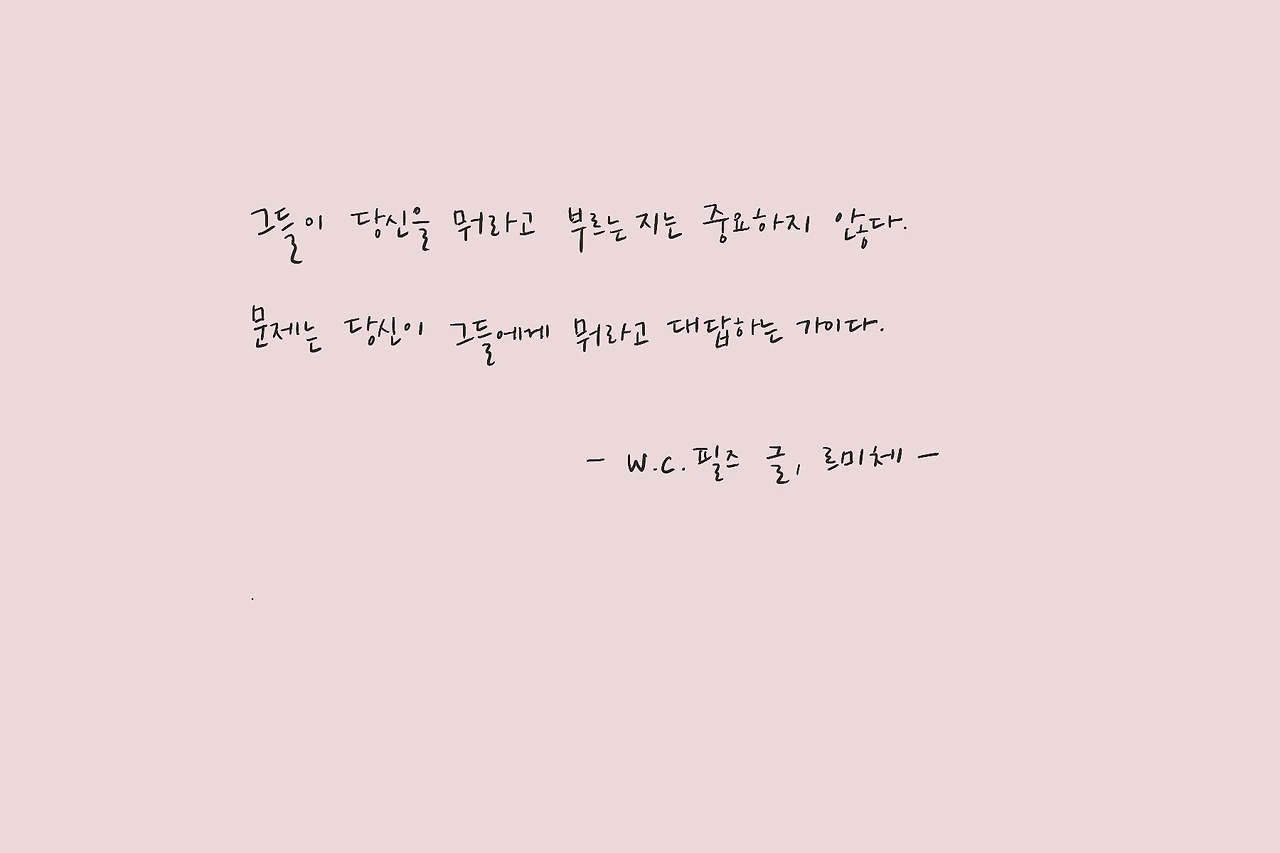 그들이 당신을 뭐라고 부르는지는 중요하지 않다.
문제는 당신이 그들에게 뭐라고 대답하는 가이다.
- W.C.필즈 글, 르미체 -